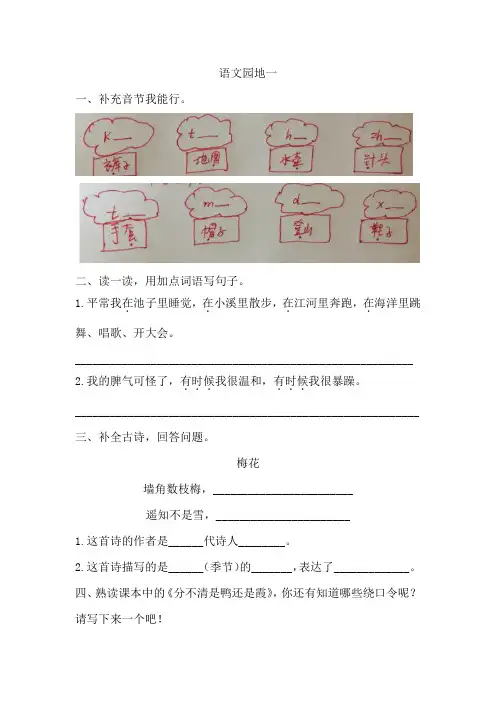 语文园地一
一、补充音节我能行。
k__ t__ h__ zh__
裤子 地图 水壶 针头
t__ m__ d__ x__
手套 帽子 登山 鞋子
二、读一读，用加点词语写句子。
1.平常我在池子里睡觉，在小溪里散步，在江河里奔跑，在海洋里跳
舞、唱歌、开大会。
2.我的脾气可怪了，有时候我很温和，有时候我很暴躁。
三、补全古诗，回答问题。
梅花
墙角数枝梅，________________________
遥知不是雪，_______________________
1.这首诗的作者是______代诗人________。
2.这首诗描写的是______(季节)的_______，表达了_____________。
四、熟读课本中的《分不清是鸭还是霞》，你还有知道哪些绕口令呢？
请写下来一个吧！